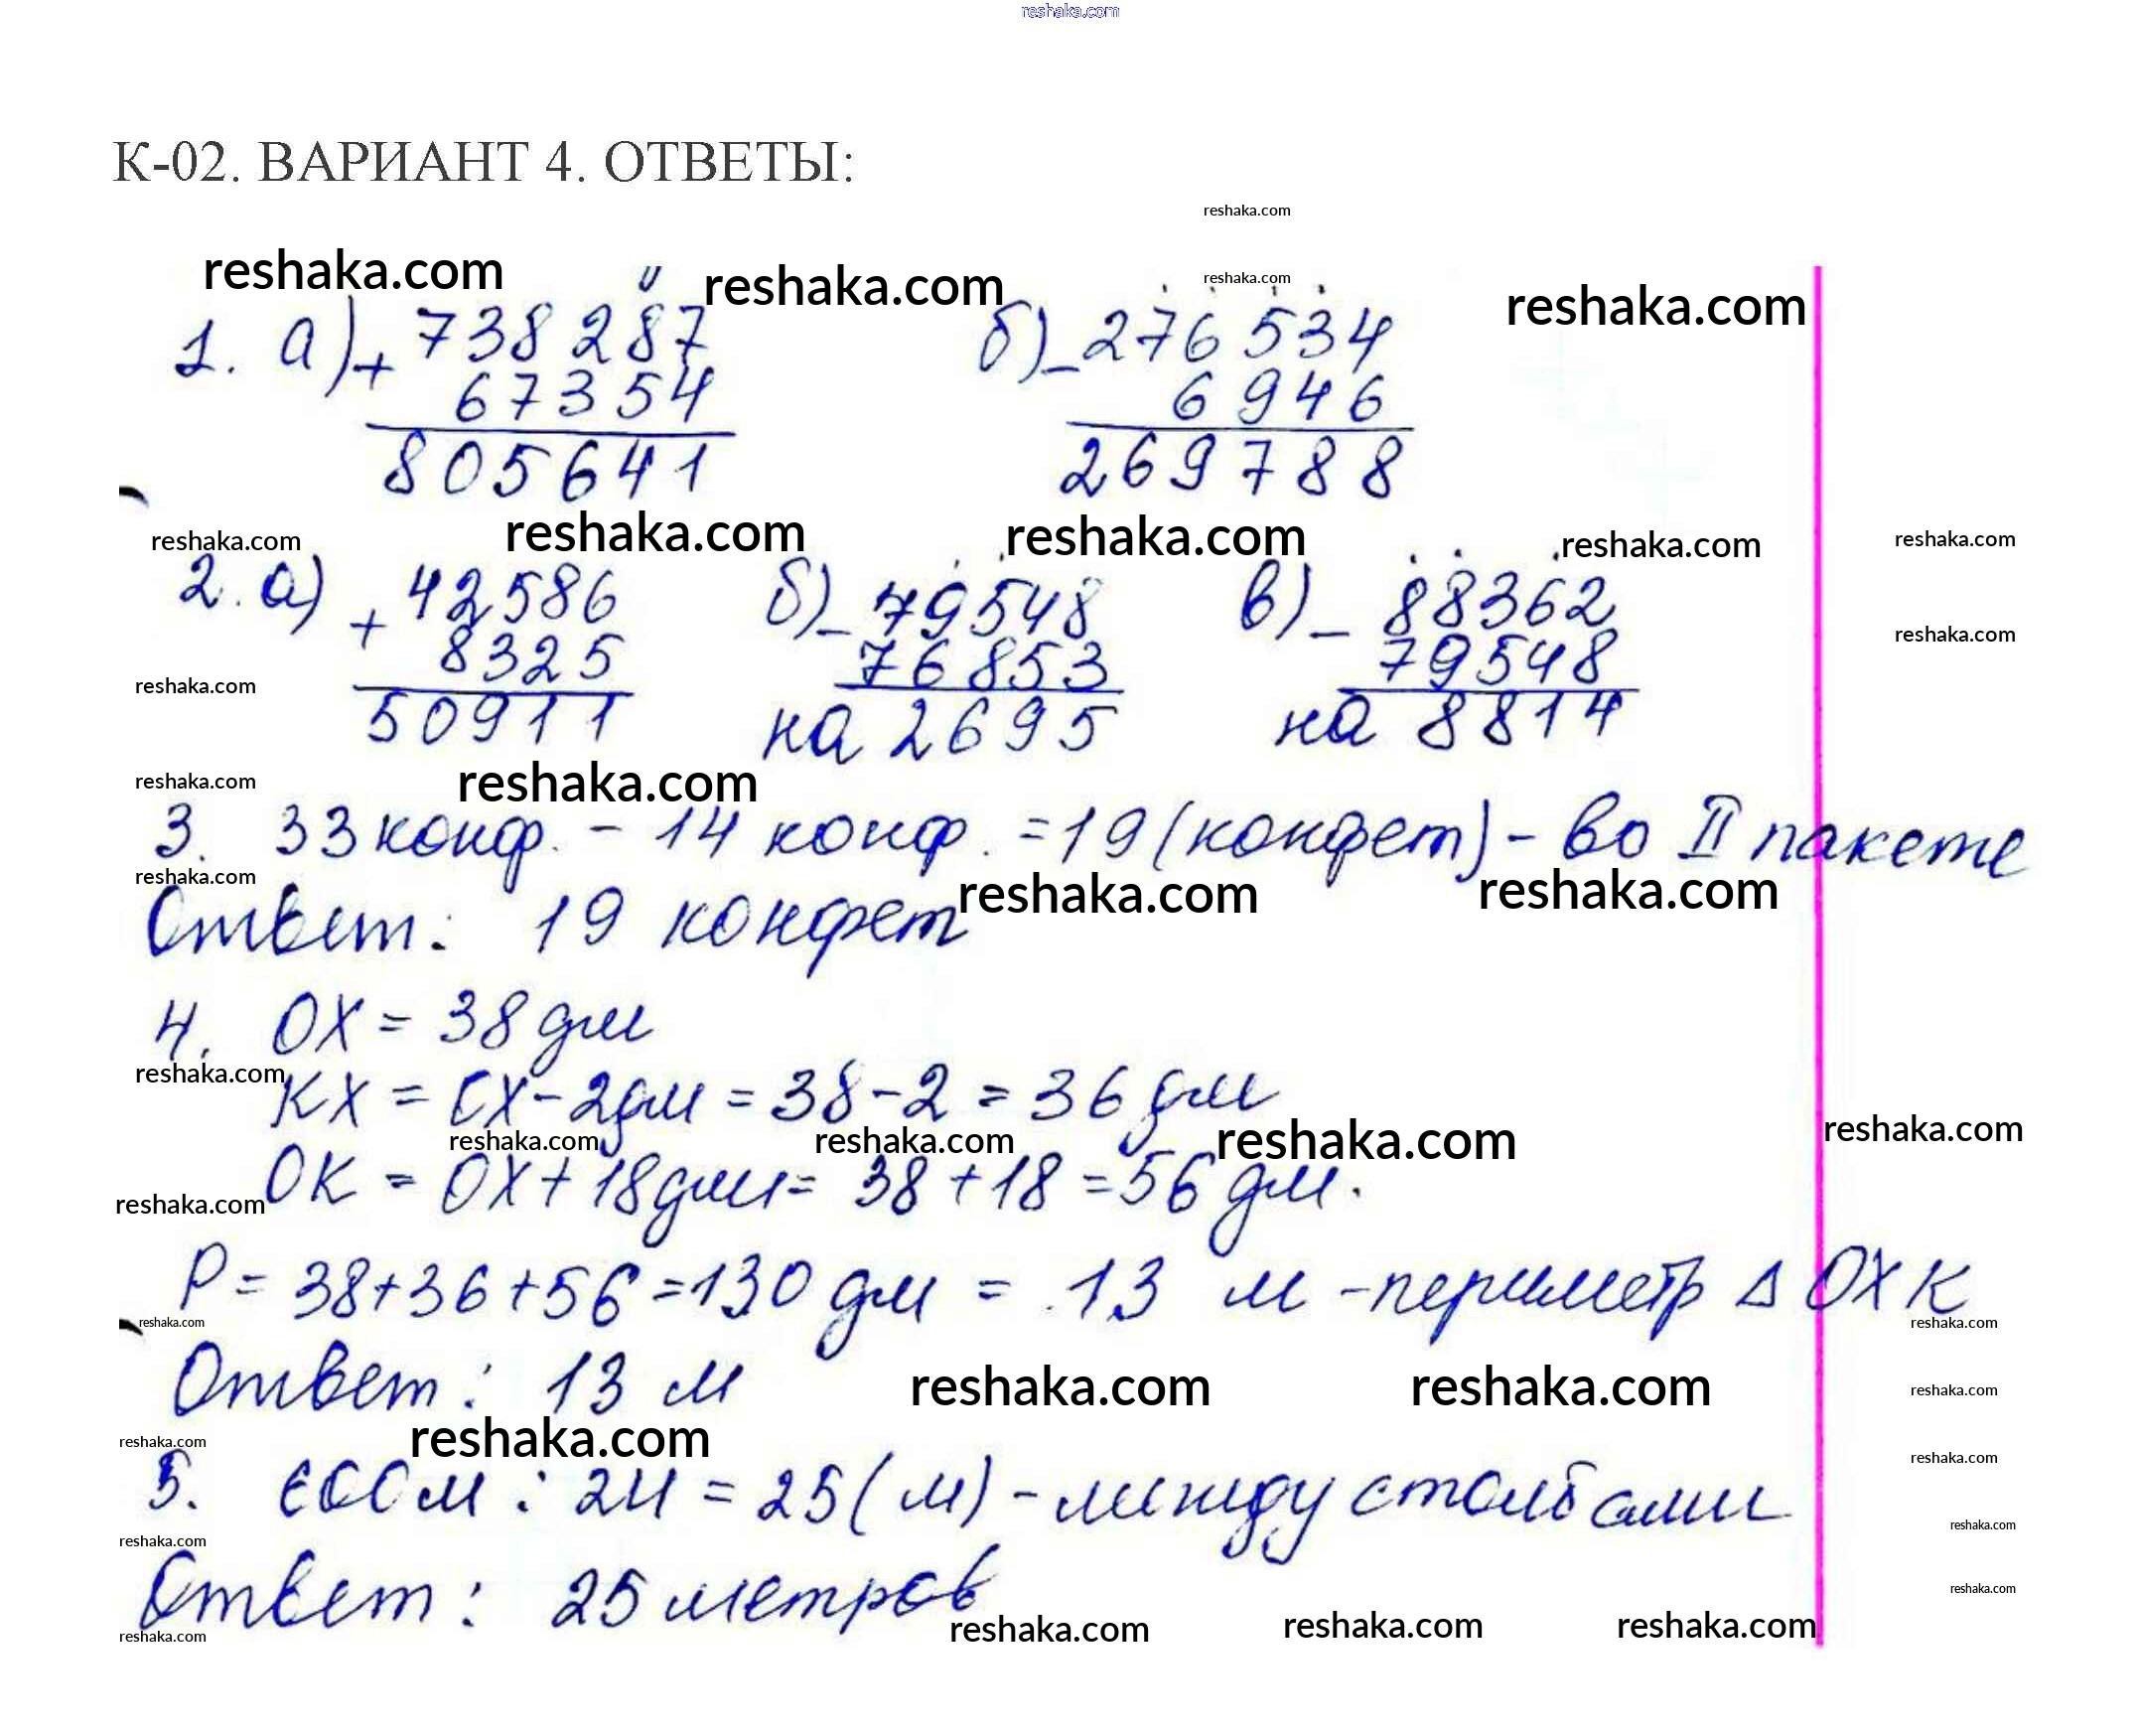 reshaka.com
К-02. ВАРИАНТ 4. ОТВЕТЫ:
reshaka.com
reshaka.com reshaka.com reshaka.com reshaka.com
1. а) + 738 287 б) - 276 534
67354 6946
805641 269788
reshaka.com reshaka.com reshaka.com reshaka.com reshaka.com
2. а) + 42586 б) - 79548 в) - 88362
reshaka.com
8325 76853 79548
reshaka.com
50911 на 2695 на 8814
reshaka.com reshaka.com
3. 33 конф. - 14 конф. = 19 (конфет) - во II пакете
reshaka.com reshaka.com reshaka.com
Ответ: 19 конфет
4. OX = 38 дм
reshaka.com
KX = OX - 2дм = 38 - 2 = 36 дм
reshaka.com reshaka.com reshaka.com reshaka.com
OK = OX + 18дм = 38 + 18 = 56 дм.
reshaka.com
P = 38 + 36 + 56 = 130 дм = 13 м - периметр Δ OXK
reshaka.com reshaka.com
Ответ: 13 м
reshaka.com reshaka.com reshaka.com
reshaka.com reshaka.com reshaka.com
5. 600 м : 24 = 25 (м) - между столбами
reshaka.com reshaka.com
Ответ: 25 метров
reshaka.com
reshaka.com reshaka.com reshaka.com reshaka.com